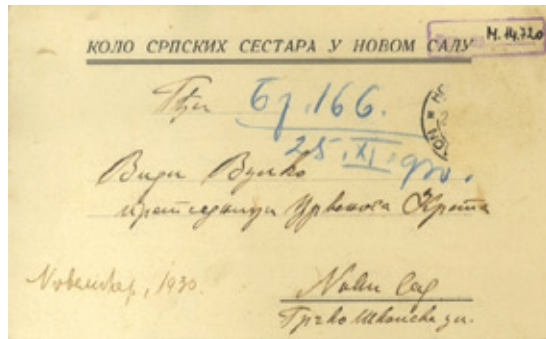 КОЛО СРПСКИХ СЕСТАРА У НОВОМ САДУ
М.14.720
Гђи
Бр. 166.
25. XI. 930.
Види Вулко
претседници Црвенога Крста
Новембар, 1930.
Нови Сад
Грчко школска ул.